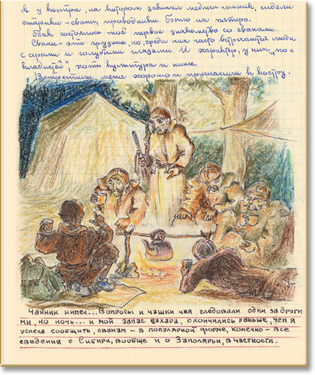 А у костра, на котором закипал медный чайник, сидели
старики-сваны, проводники. Было их пятеро.
Так состоялось моё первое знакомство со сванами.
Сваны - это грузины, но среди них часто встречаются люди
с серыми и голубыми глазами. И характер у них, "по-
хотя культура и иная.
меня хорошо и пригласили к костру.
Чайник кипел... Вопросы и чашки чая следовали одни за други
ми, но ночь... и мой запас сахара, окончились раньше, чем я
успела сообщить, сванам - в популярной форме, конечно - все
сведения о Сибири, вообще и о Заполярьи, в частности.